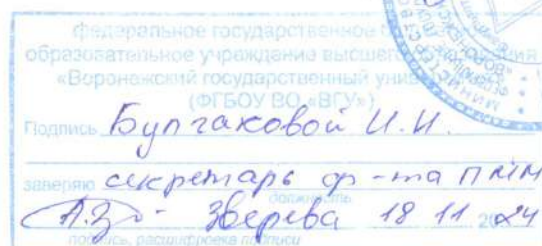 федеральное государственное
образовательное учреждение высшего
«Воронежский государственный универ
(ФГБОУ ВО «ВГУ»)
Подпись Булгаковой И.Н.
заверяю секретарь ф-та ПММ
должность
Зверева 18 11 2024
подпись, расшифровка подписи